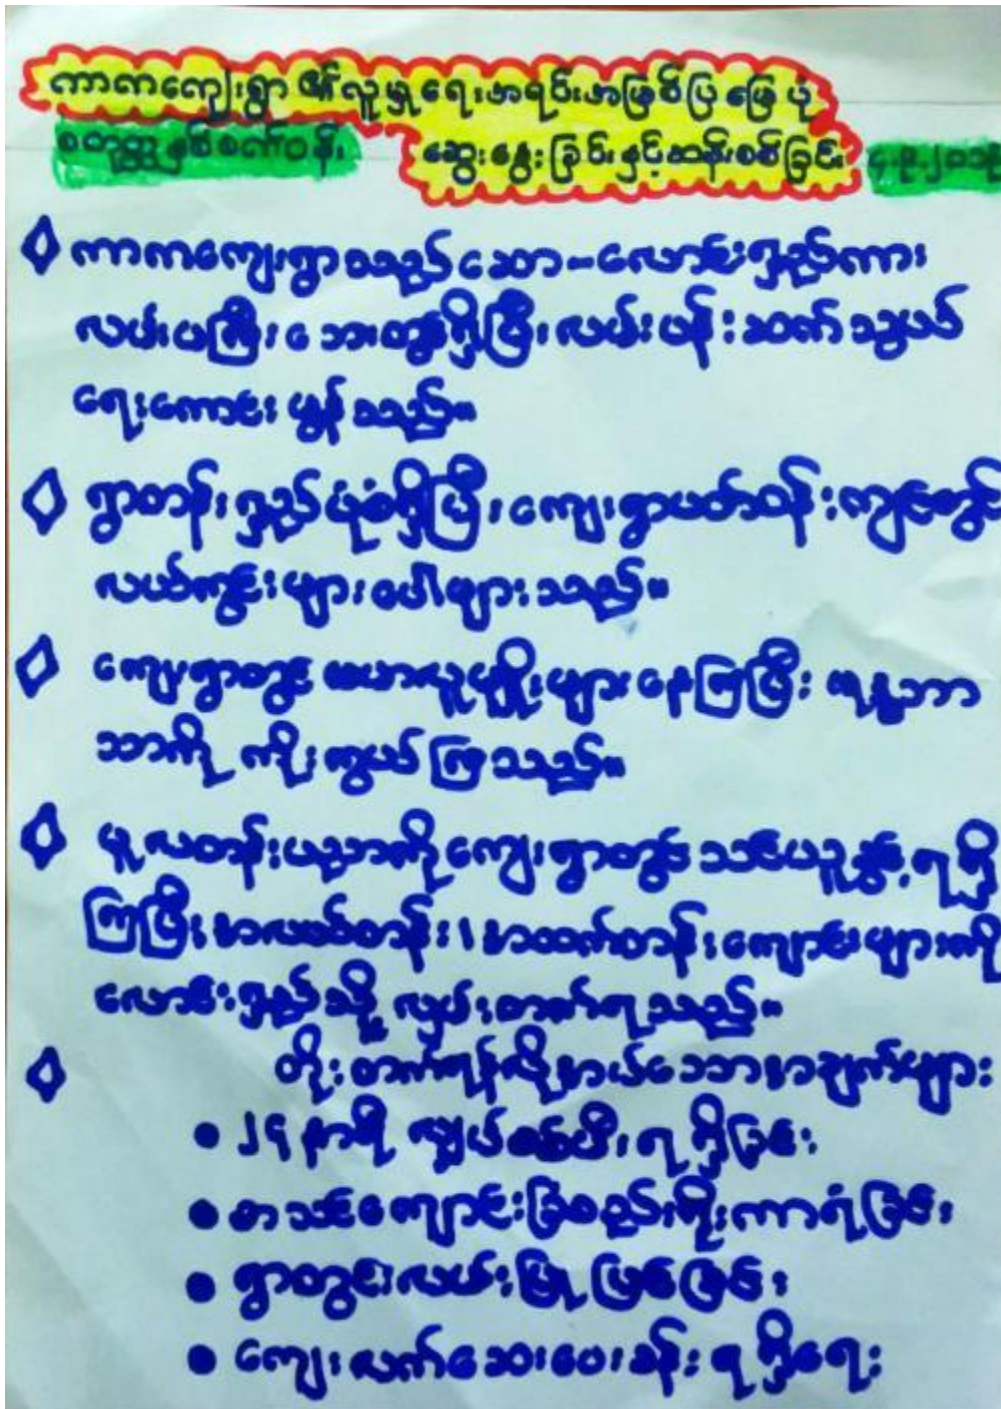 ကာကကျေးရွာ ၏လူမှုရေးအရင်းအမြစ်ပြ မြေပုံ
စတုတ္ထနှစ်စက်ဝန်း ဆွေးနွေးခြင်းနှင့်ဆန်းစစ်ခြင်း ၄.၉.၂၀၁၅
ကာကကျေးရွာသည် ဆော-လောင်းရှည်ကား
လမ်းမကြီးဘေးတွင်ရှိပြီး လမ်းပန်းဆက်သွယ်
ရေးကောင်းမွန်သည်။
ရွာတန်းရှည်ပုံစံရှိပြီး ကျေးရွာပတ်ဝန်းကျင်တွင်
လယ်ကွင်းများပေါများသည်။
ကျေးရွာတွင် ဗမာလူမျိုးများနေကြပြီး ဗုဒ္ဓဘာ
သာကို ကိုးကွယ်ကြသည်။
မူလတန်းပညာကိုကျေးရွာတွင် သင်ယူခွင့်ရရှိ
ကြပြီး အလယ်တန်း၊ အထက်တန်းကျောင်းများကို
လောင်းရှည်သို့ လှမ်းတက်ရသည်။
တိုးတက်ရန်လိုအပ်သောအချက်များ
၂၄ နာရီ လျှပ်စစ်မီးရရှိခြင်း
စာသင်ကျောင်းခြံစည်းရိုးကာရံခြင်း
ရွာတွင်းလမ်းမြို့ ဖြစ်ခြင်း
ကျေးလက်ဆေးပေးခန်း ရရှိရေး